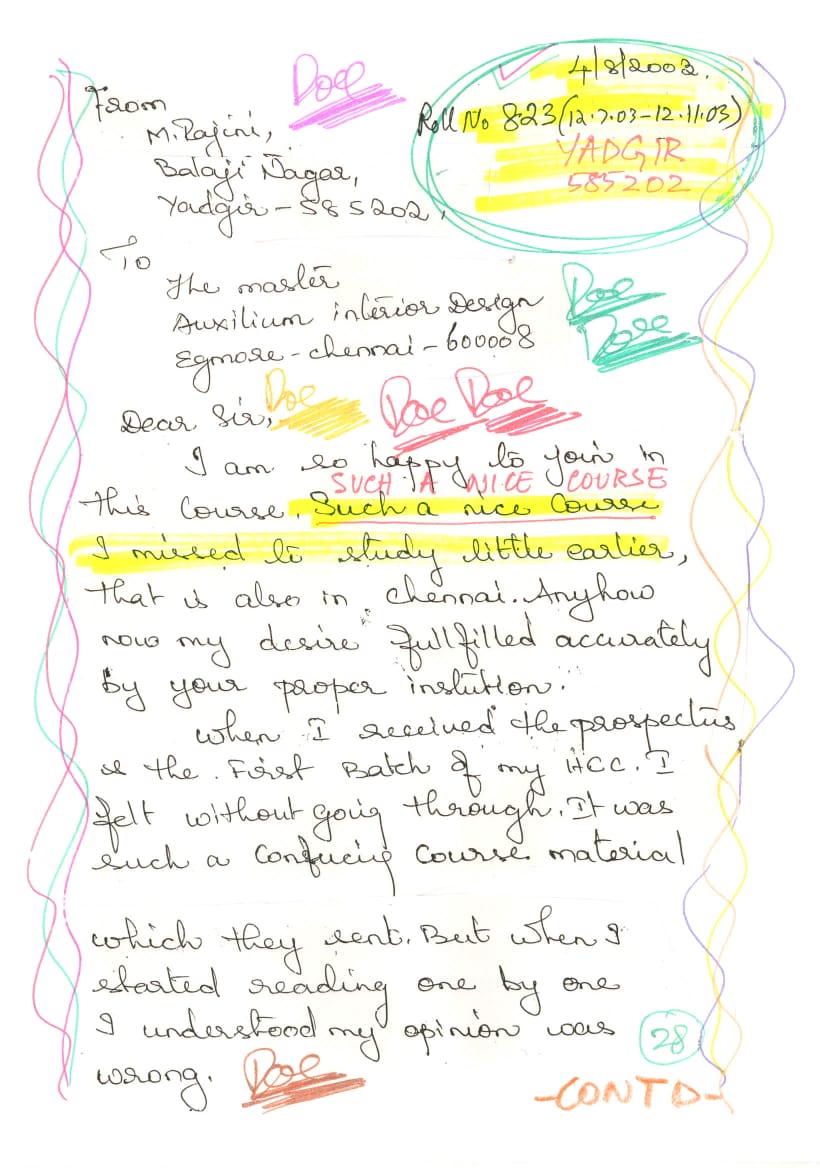 Doe
4/8/2003.
Roll No 823 (12.7.03-12.11.03)
YADGIR
585202
From
M. Rajini,
Balaji Nagar,
Yadgir - 585202,
To
The master
Auxilium interior Design
Egmore - chennai - 600008
Doe
Doe
Doe
Doe Doe
Dear Sir,
I am so happy to join in
SUCH A NICE COURSE
this Course. Such a nice Course
I missed to study little earlier,
that is also in chennai. Anyhow
now my desire fullfilled accurately
by your proper instution.
when I received the prospectus
& the First Batch of my HCC. I
felt without going through. It was
such a Confucing Course material
which they sent. But when I
started reading one by one
I understood my opinion was
wrong.
Doe
28
-CONTD-